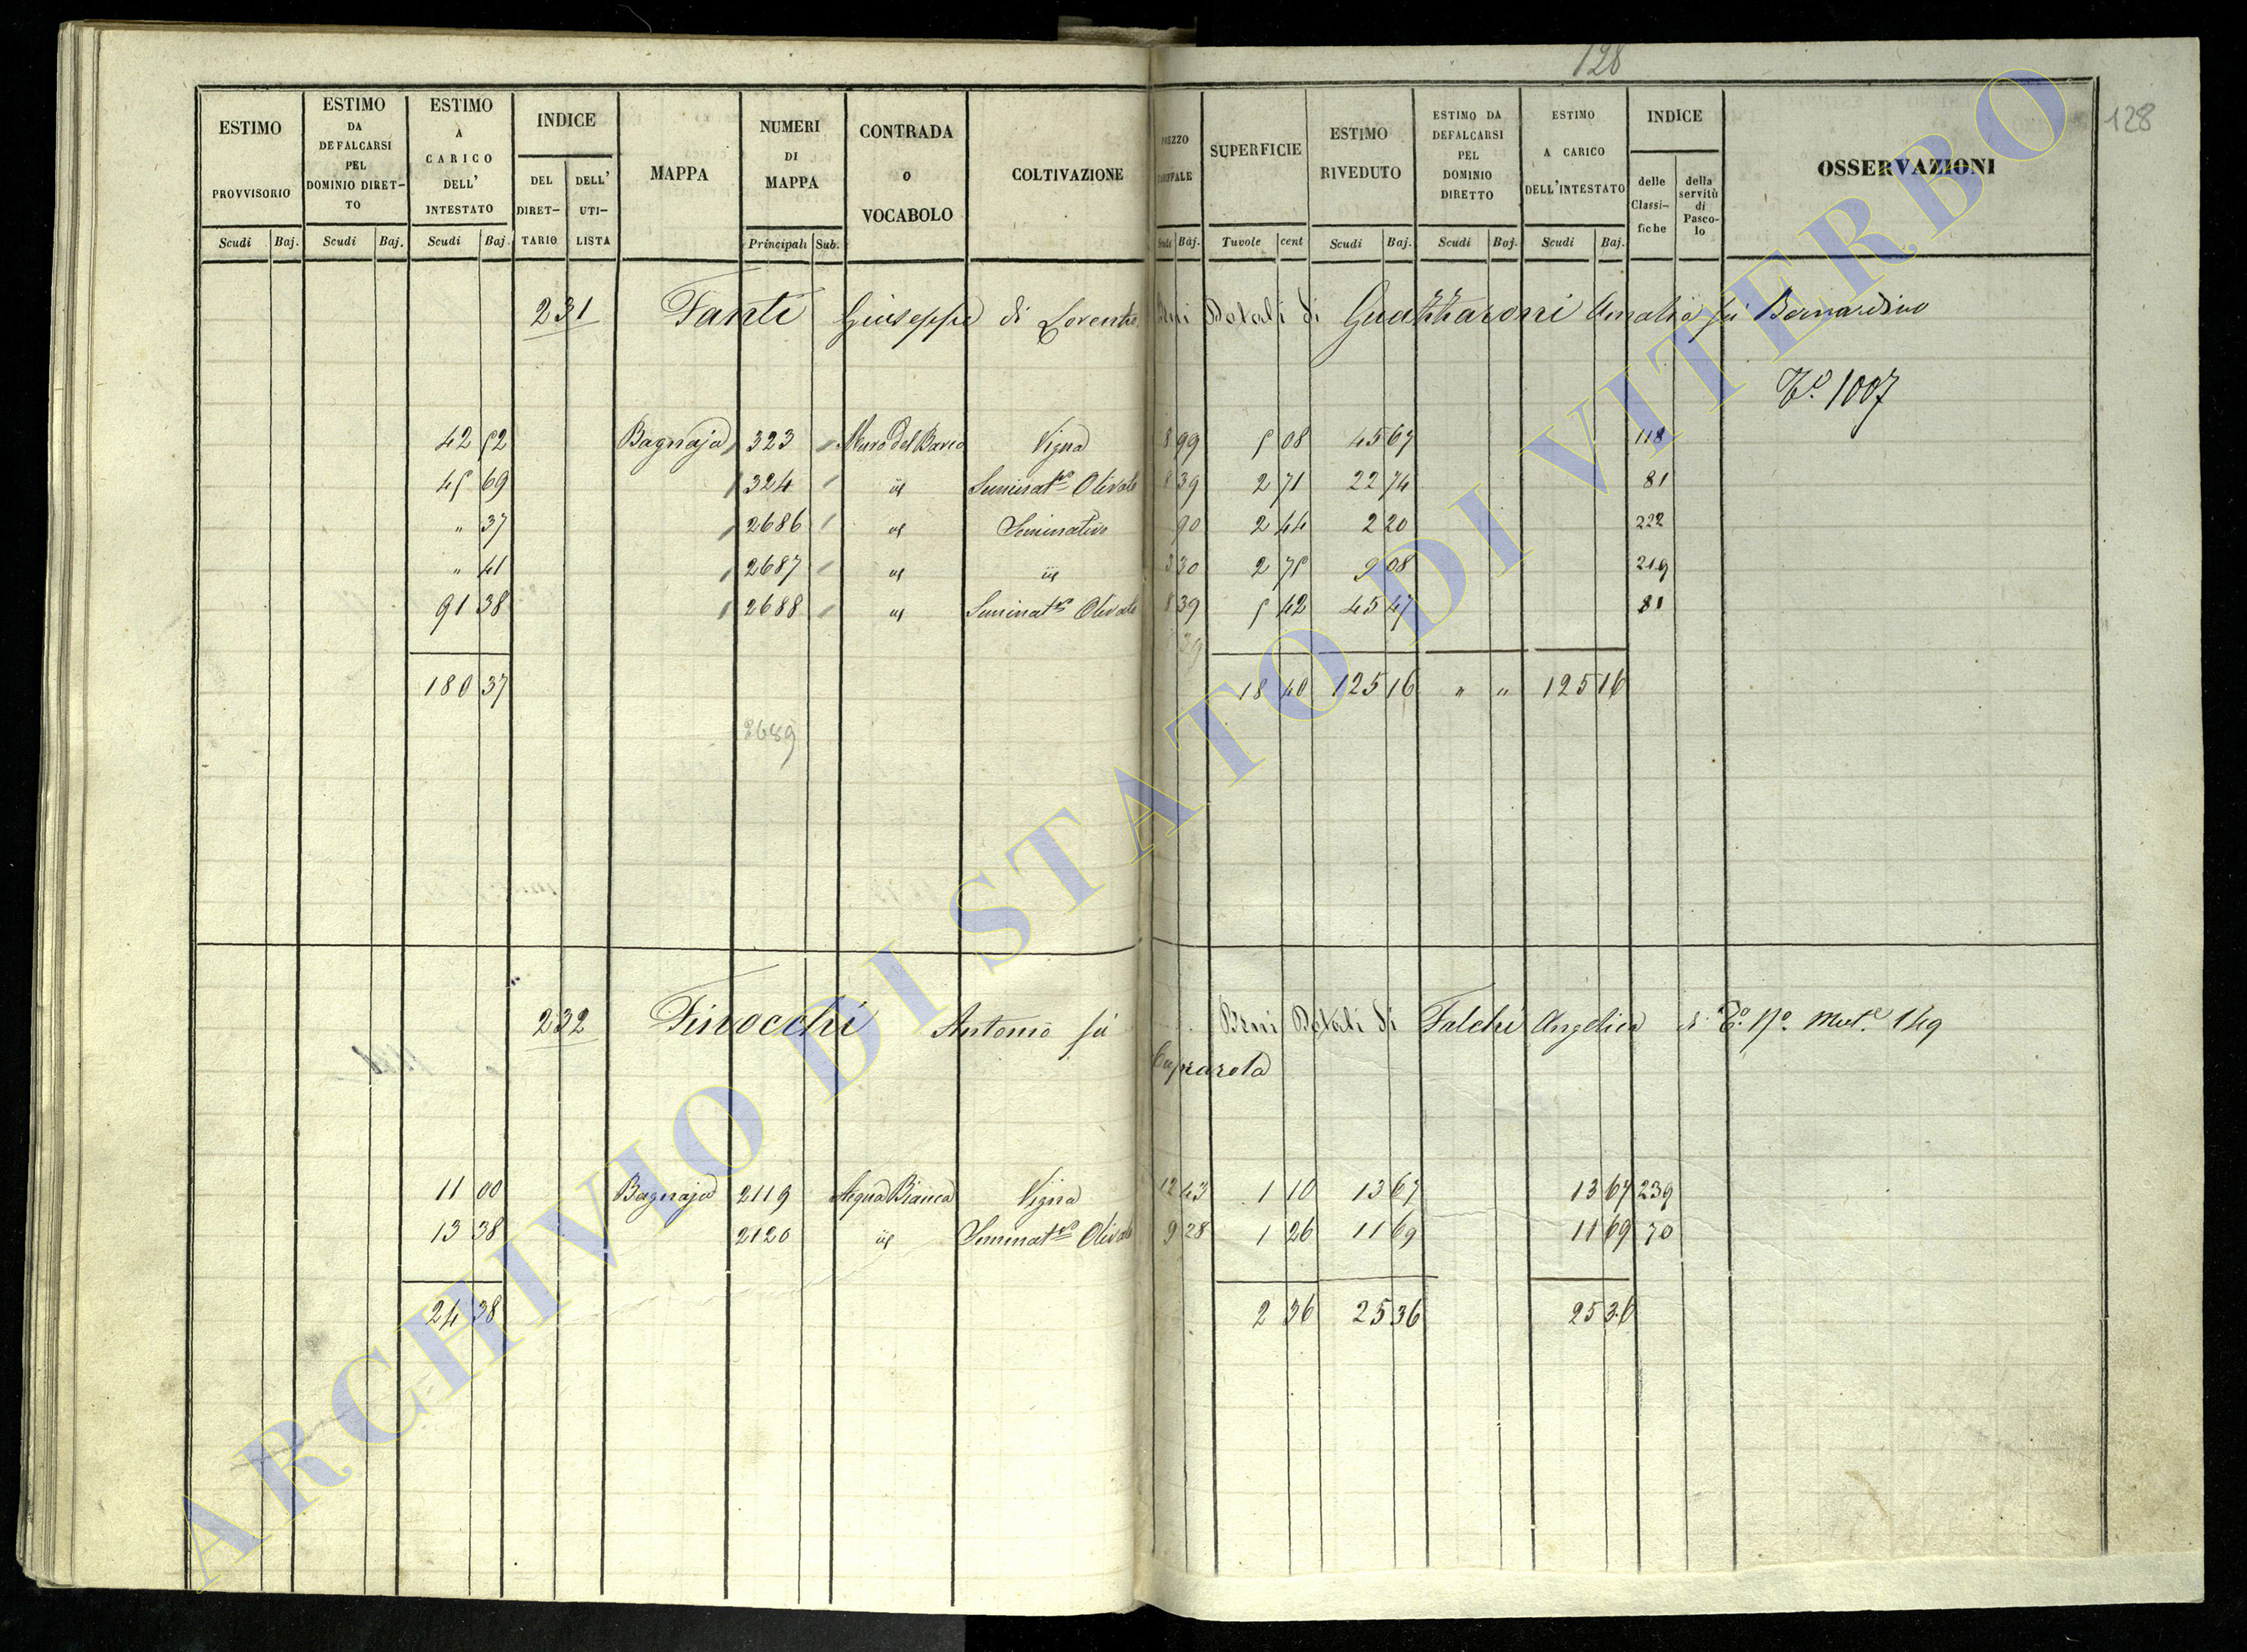 128
128
ESTIMO PROVVISORIO Scudi Baj.
ESTIMO DA DEFALCARSI PEL DOMINIO DIRETTO Scudi Baj.
ESTIMO A CARICO DELL' INTESTATO Scudi Baj.
INDICE DEL DIRETTARIO DELL' UTILISTA
MAPPA
NUMERI DI MAPPA Principali Sub.
CONTRADA O VOCABOLO
COLTIVAZIONE
PREZZO Baj.
SUPERFICIE Tavole cent
ESTIMO RIVEDUTO Scudi Baj.
ESTIMO DA DEFALCARSI PEL DOMINIO DIRETTO Scudi Baj.
ESTIMO A CARICO DELL'INTESTATO Scudi Baj.
INDICE delle Classifiche della servitù di Pascolo
OSSERVAZIONI
231 Fanti Giuseppe di Lorenzo Beni Dotali di Guazzaroni Amalia fù Bernardino
To. 1007
42 52 Bagnaja 323 Muro del Barco Vigna 8 99 5 08 45 67 118
45 69 324 id Seminato Olivato 8 39 2 71 22 74 81
" 37 2686 id Seminativo 90 2 44 2 20 222
" 41 2687 id id 3 30 2 75 9 08 219
91 38 2688 id Seminato Olivato 8 39 5 42 45 47 81
39
180 37 18 40 125 16 " " 125 16
2689
232 Finocchi Antonio fù Beni Dotali di Falchi Angelica To. No. Mut.e 149
Caprarola
11 00 Bagnaja 2119 Acqua Bianca Vigna 12 43 1 10 13 67 13 67 239
13 38 2120 id Seminato Olivato 9 28 1 26 11 69 11 69 70
24 38 2 36 25 36 25 36
ARCHIVIO DI STATO DI VITERBO